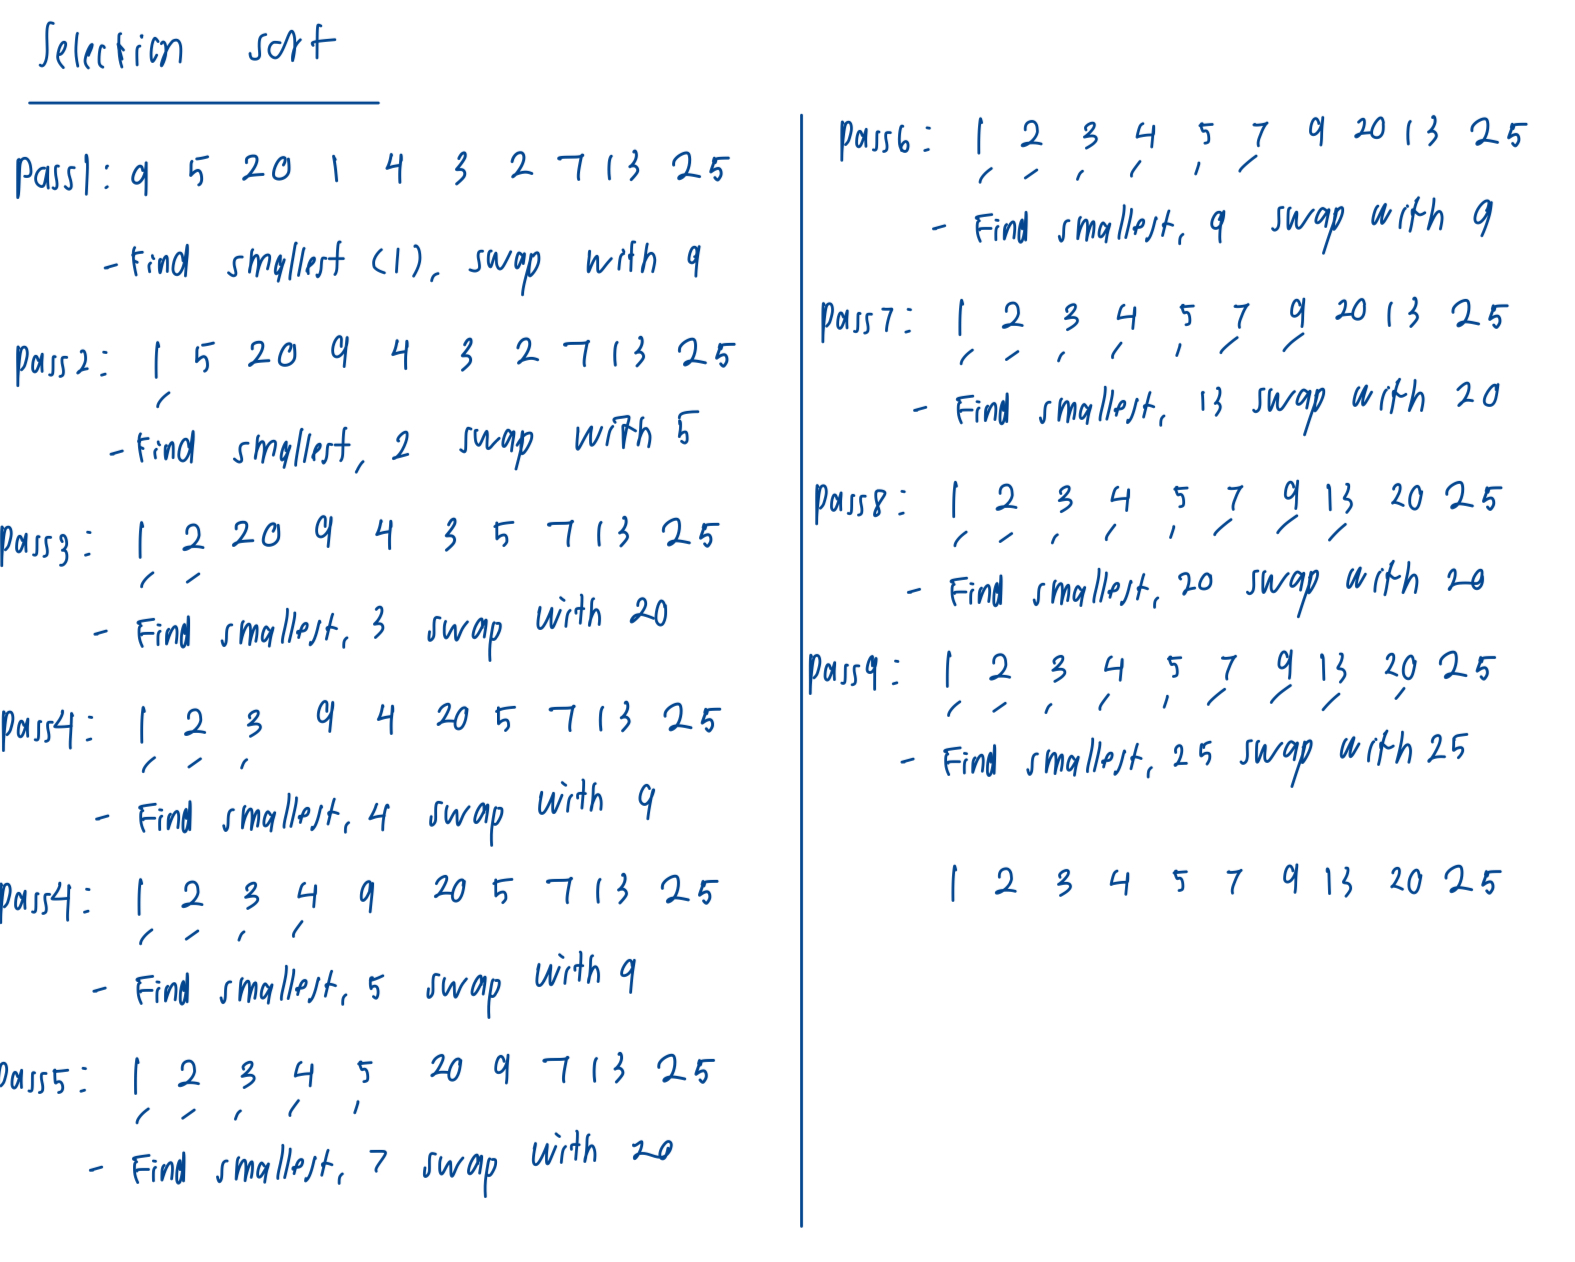 Selection sort
Pass1: 9 5 20 1 4 3 2 7 13 25
- Find smallest (1), swap with 9
Pass2: 1 5 20 9 4 3 2 7 13 25
- Find smallest, 2 swap with 5
Pass3: 1 2 20 9 4 3 5 7 13 25
- Find smallest, 3 swap with 20
Pass4: 1 2 3 9 4 20 5 7 13 25
- Find smallest, 4 swap with 9
Pass4: 1 2 3 4 9 20 5 7 13 25
- Find smallest, 5 swap with 9
Pass5: 1 2 3 4 5 20 9 7 13 25
- Find smallest, 7 swap with 20
Pass6: 1 2 3 4 5 7 9 20 13 25
- Find smallest, 9 swap with 9
Pass7: 1 2 3 4 5 7 9 20 13 25
- Find smallest, 13 swap with 20
Pass8: 1 2 3 4 5 7 9 13 20 25
- Find smallest, 20 swap with 20
Pass9: 1 2 3 4 5 7 9 13 20 25
- Find smallest, 25 swap with 25
1 2 3 4 5 7 9 13 20 25